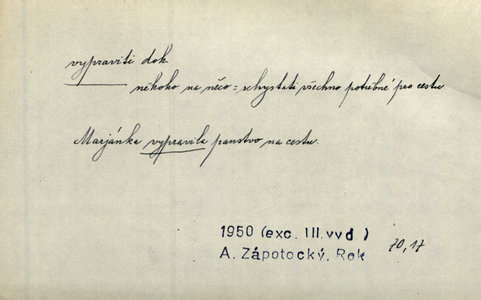 vypraviti dok.
někoho na něco = schystati všechno potřebné pro cestu
Marjánka vypravila panstvo na cestu.
1950 (exc. III. vyd.)
A. Zápotocký, Rok
70, 17